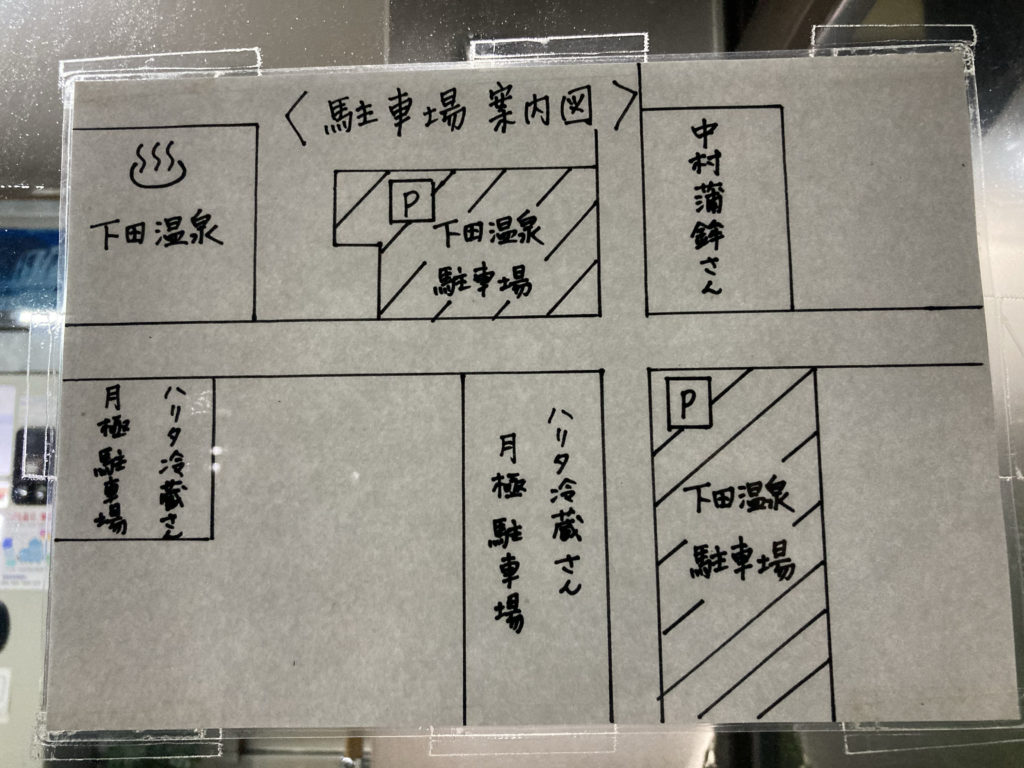 〈駐車場 案内図〉
下田温泉
P
下田温泉
駐車場
中村蒲鉾さん
ハリタ冷蔵さん
月極駐車場
ハリタ冷蔵さん
月極駐車場
P
下田温泉
駐車場